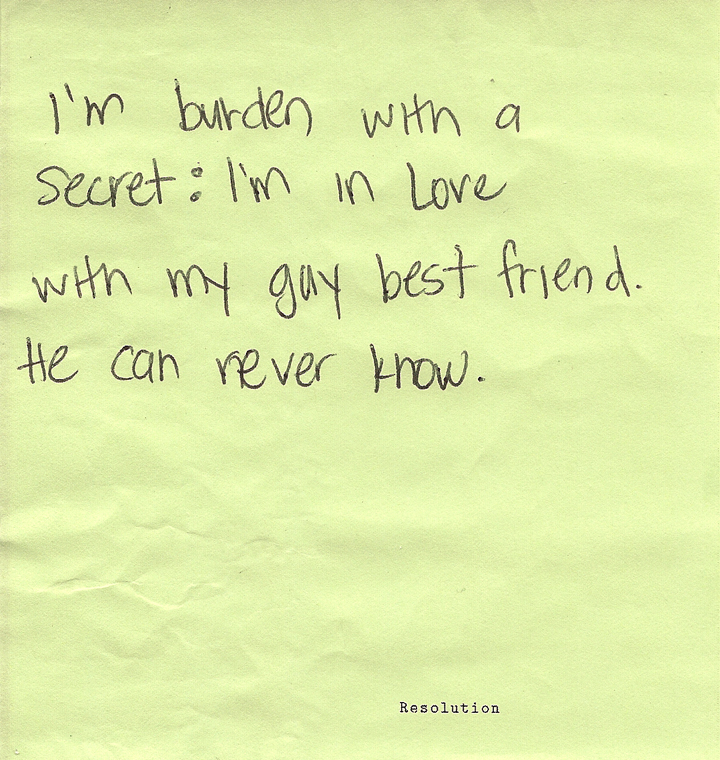 I'm burden with a
secret: I'm in Love
with my guy best friend.
He can never know.
Resolution